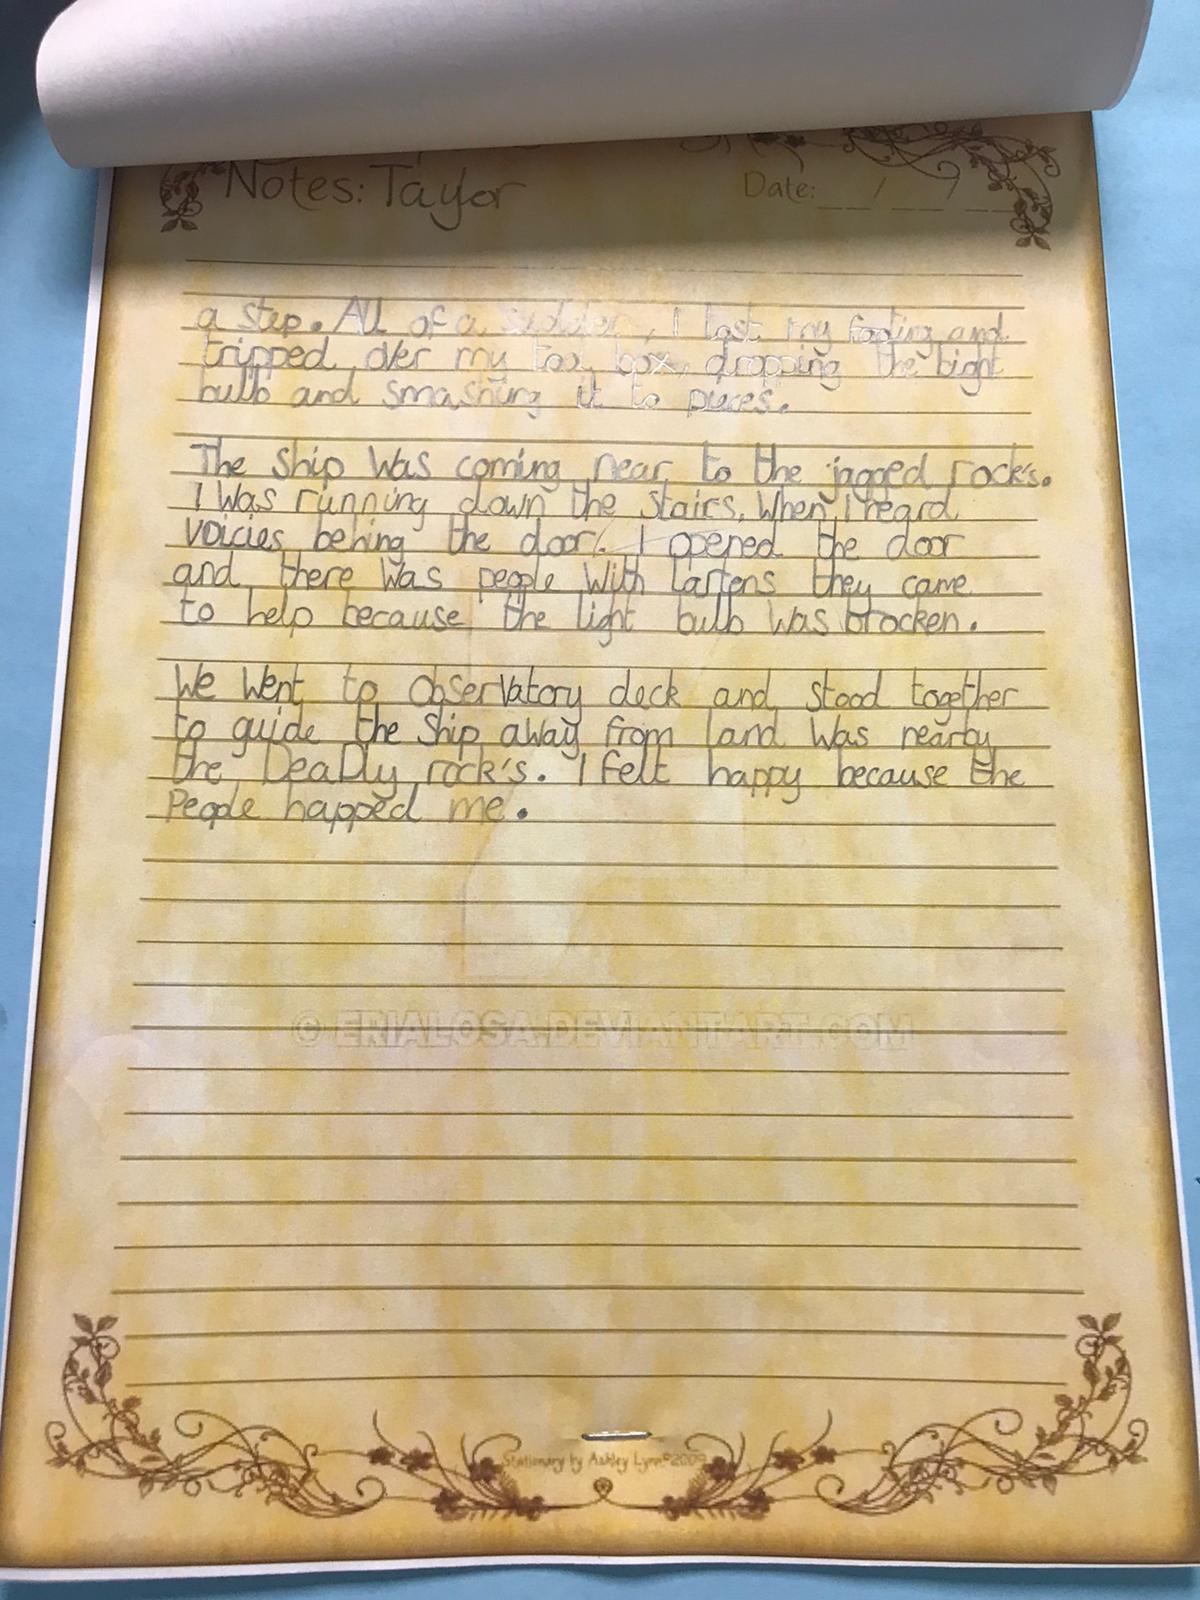 Notes: Taylor
Date: __/__/__
a step. All of a sudden, I lost my footing and
tripped over my tool box, dropping the light
bulb and smashing it to pieces.
The ship was coming near to the jagged rock's.
I was running down the stairs. When I heard
voicies behing the door. I opened the door
and there was people with lartens they came
to help because the light bulb was brocken.
We went to observatory deck and stood together
to guide the ship away from land was nearby
the DeaDly rock's. I felt happy because the
People happed me.
© ERIALOSA.DEVIANTART.COM
Stationary by Ashley Lynn©2009